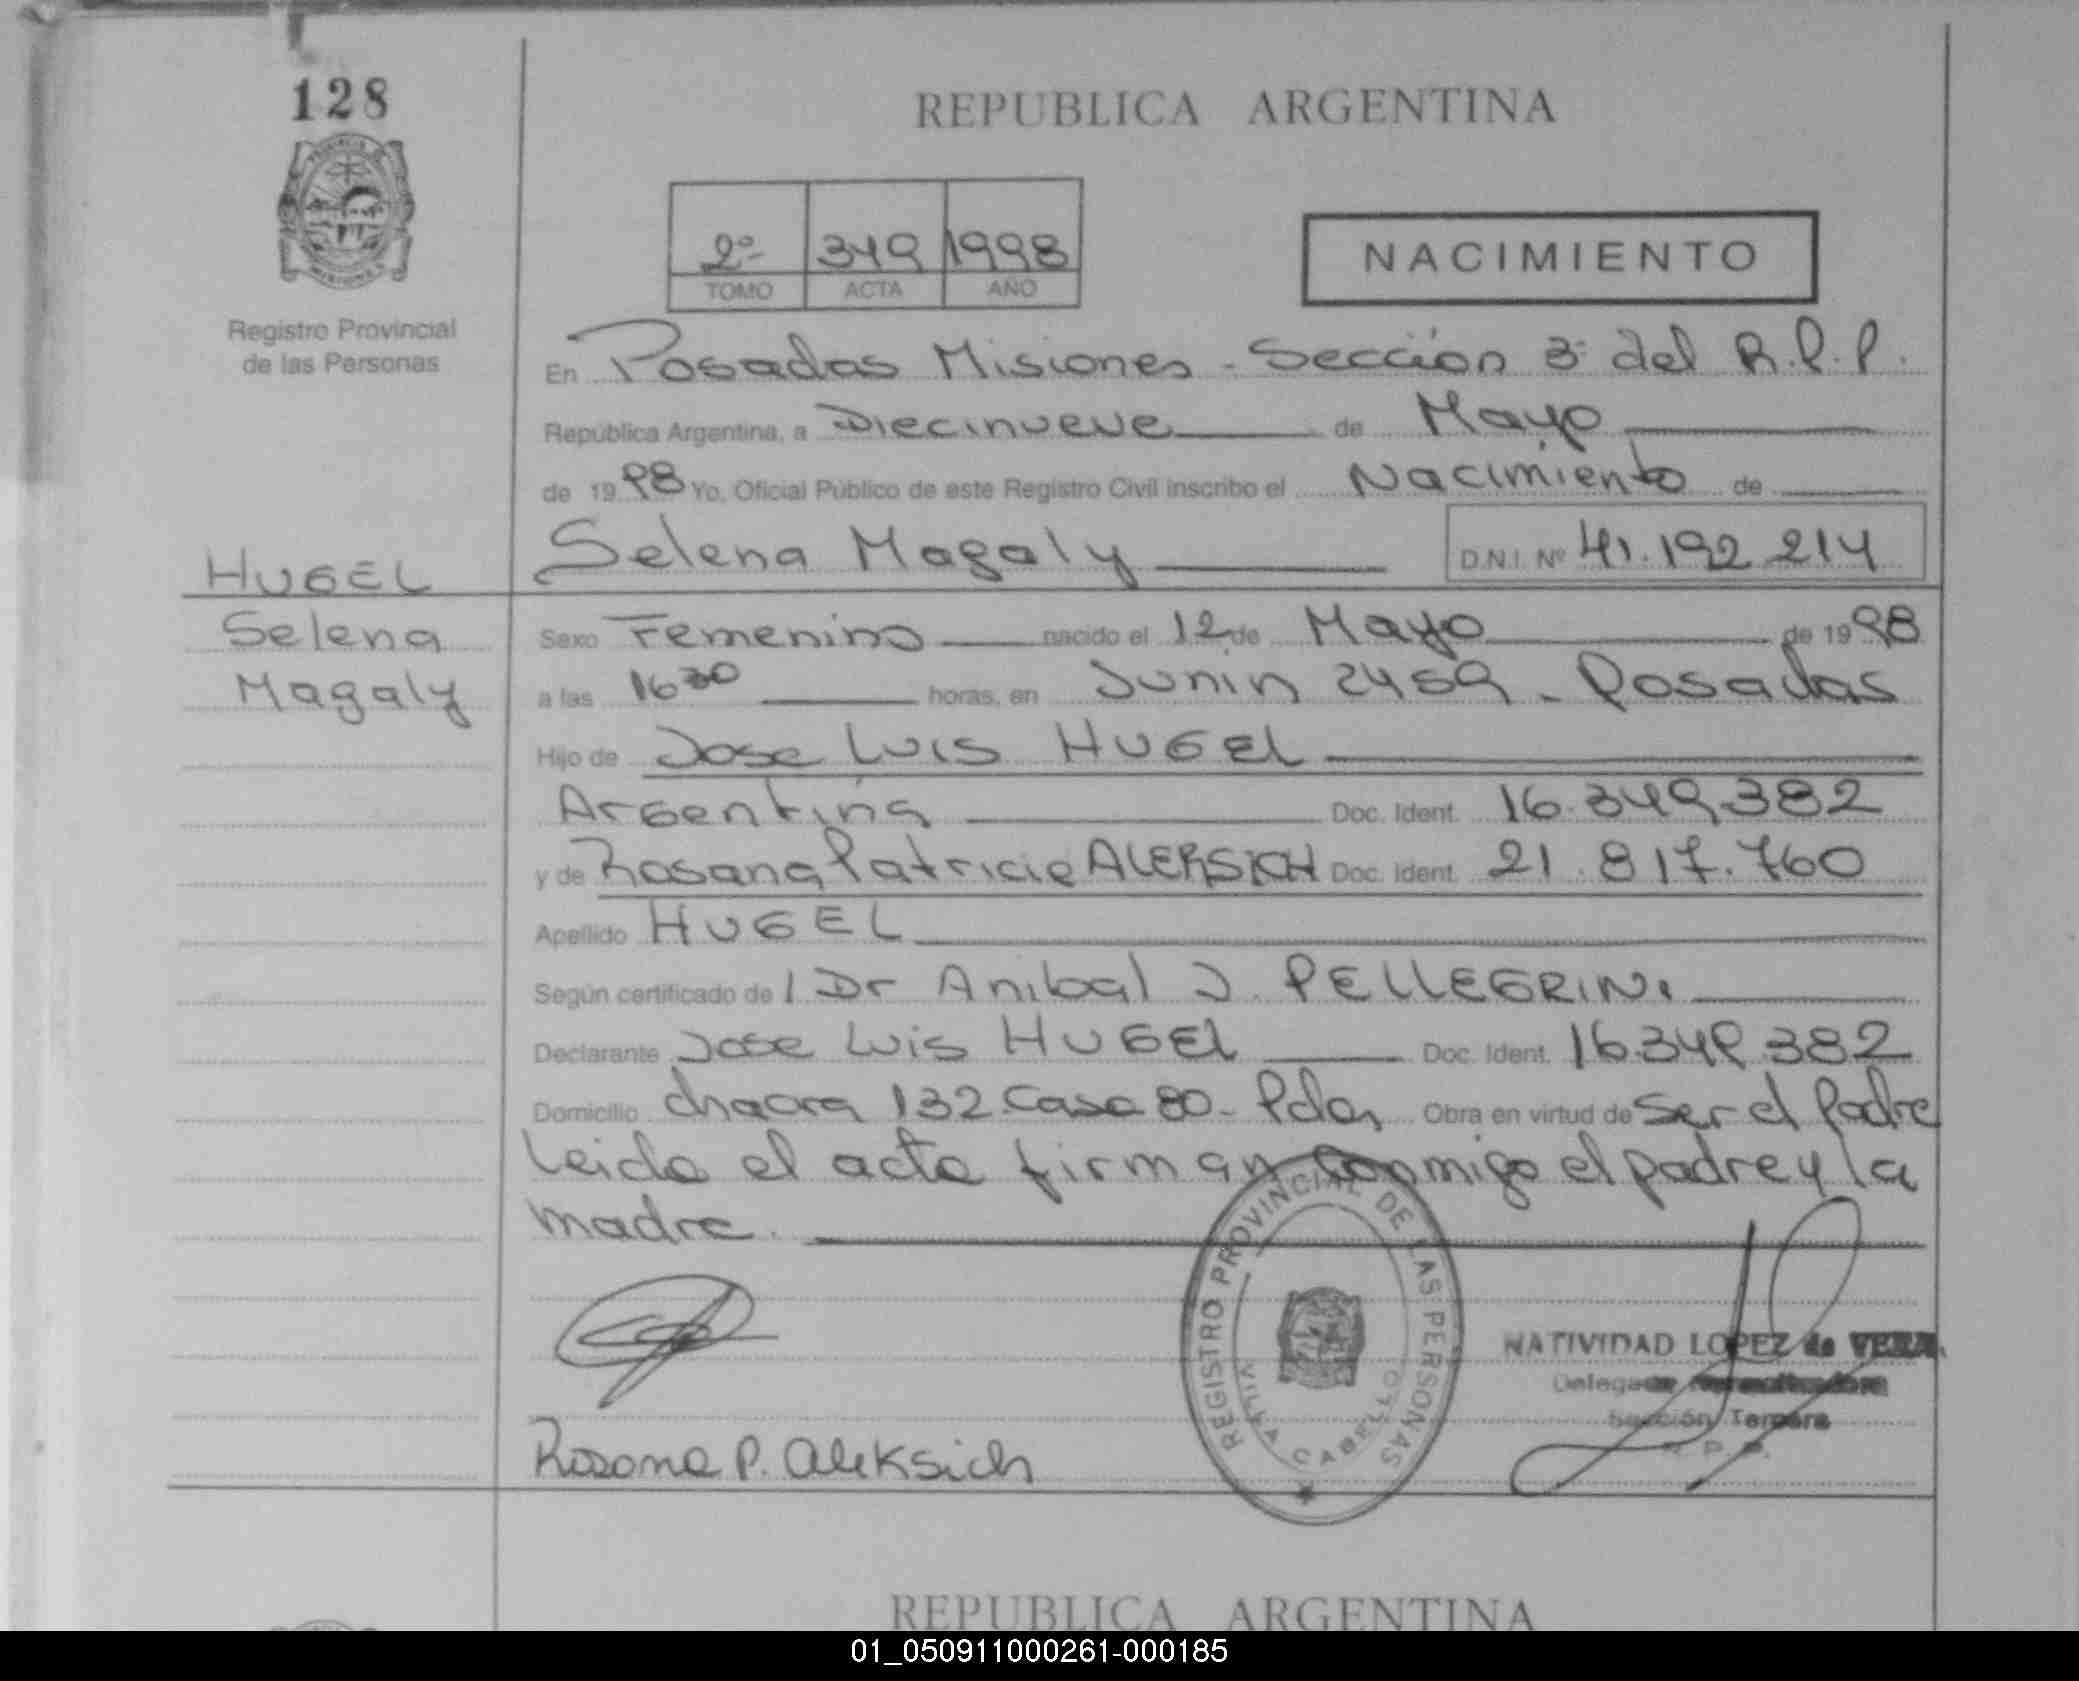 128
REPUBLICA ARGENTINA
2º 349 1998
TOMO ACTA AÑO
NACIMIENTO
Registro Provincial
de las Personas
En Posadas Misiones - Sección 3ª del R.P.P.
República Argentina, a Diecinueve de Mayo
de 1998 Yo, Oficial Público de este Registro Civil inscribo el Nacimiento de
Selena Magaly D.N.I. Nº 41.192.214
HUGEL
Selena
Magaly
Sexo Femenino nacido el 12 de Mayo de 1998
a las 16 30 horas, en Junin 2459 - Posadas
Hijo de Jose Luis HUGEL
Argentina Doc. Ident. 16.349.382
y de Rosana Patricia ALEKSICH Doc. Ident. 21.817.760
Apellido HUGEL
Según certificado de l Dr Anibal J. PELLEGRINI
Declarante Jose Luis HUGEL Doc. Ident. 16.349.382
Domicilio chacra 132 Casa 80 - Pdas Obra en virtud de Ser el Padre
Leida el acta firman conmigo el padre y la
madre.
REGISTRO PROVINCIAL DE LAS PERSONAS
VILLA CABELLO
NATIVIDAD LOPEZ de VERA
Sección Tercera
R. P. P.
Rosana P. Aleksich
REPUBLICA ARGENTINA
01_050911000261-000185